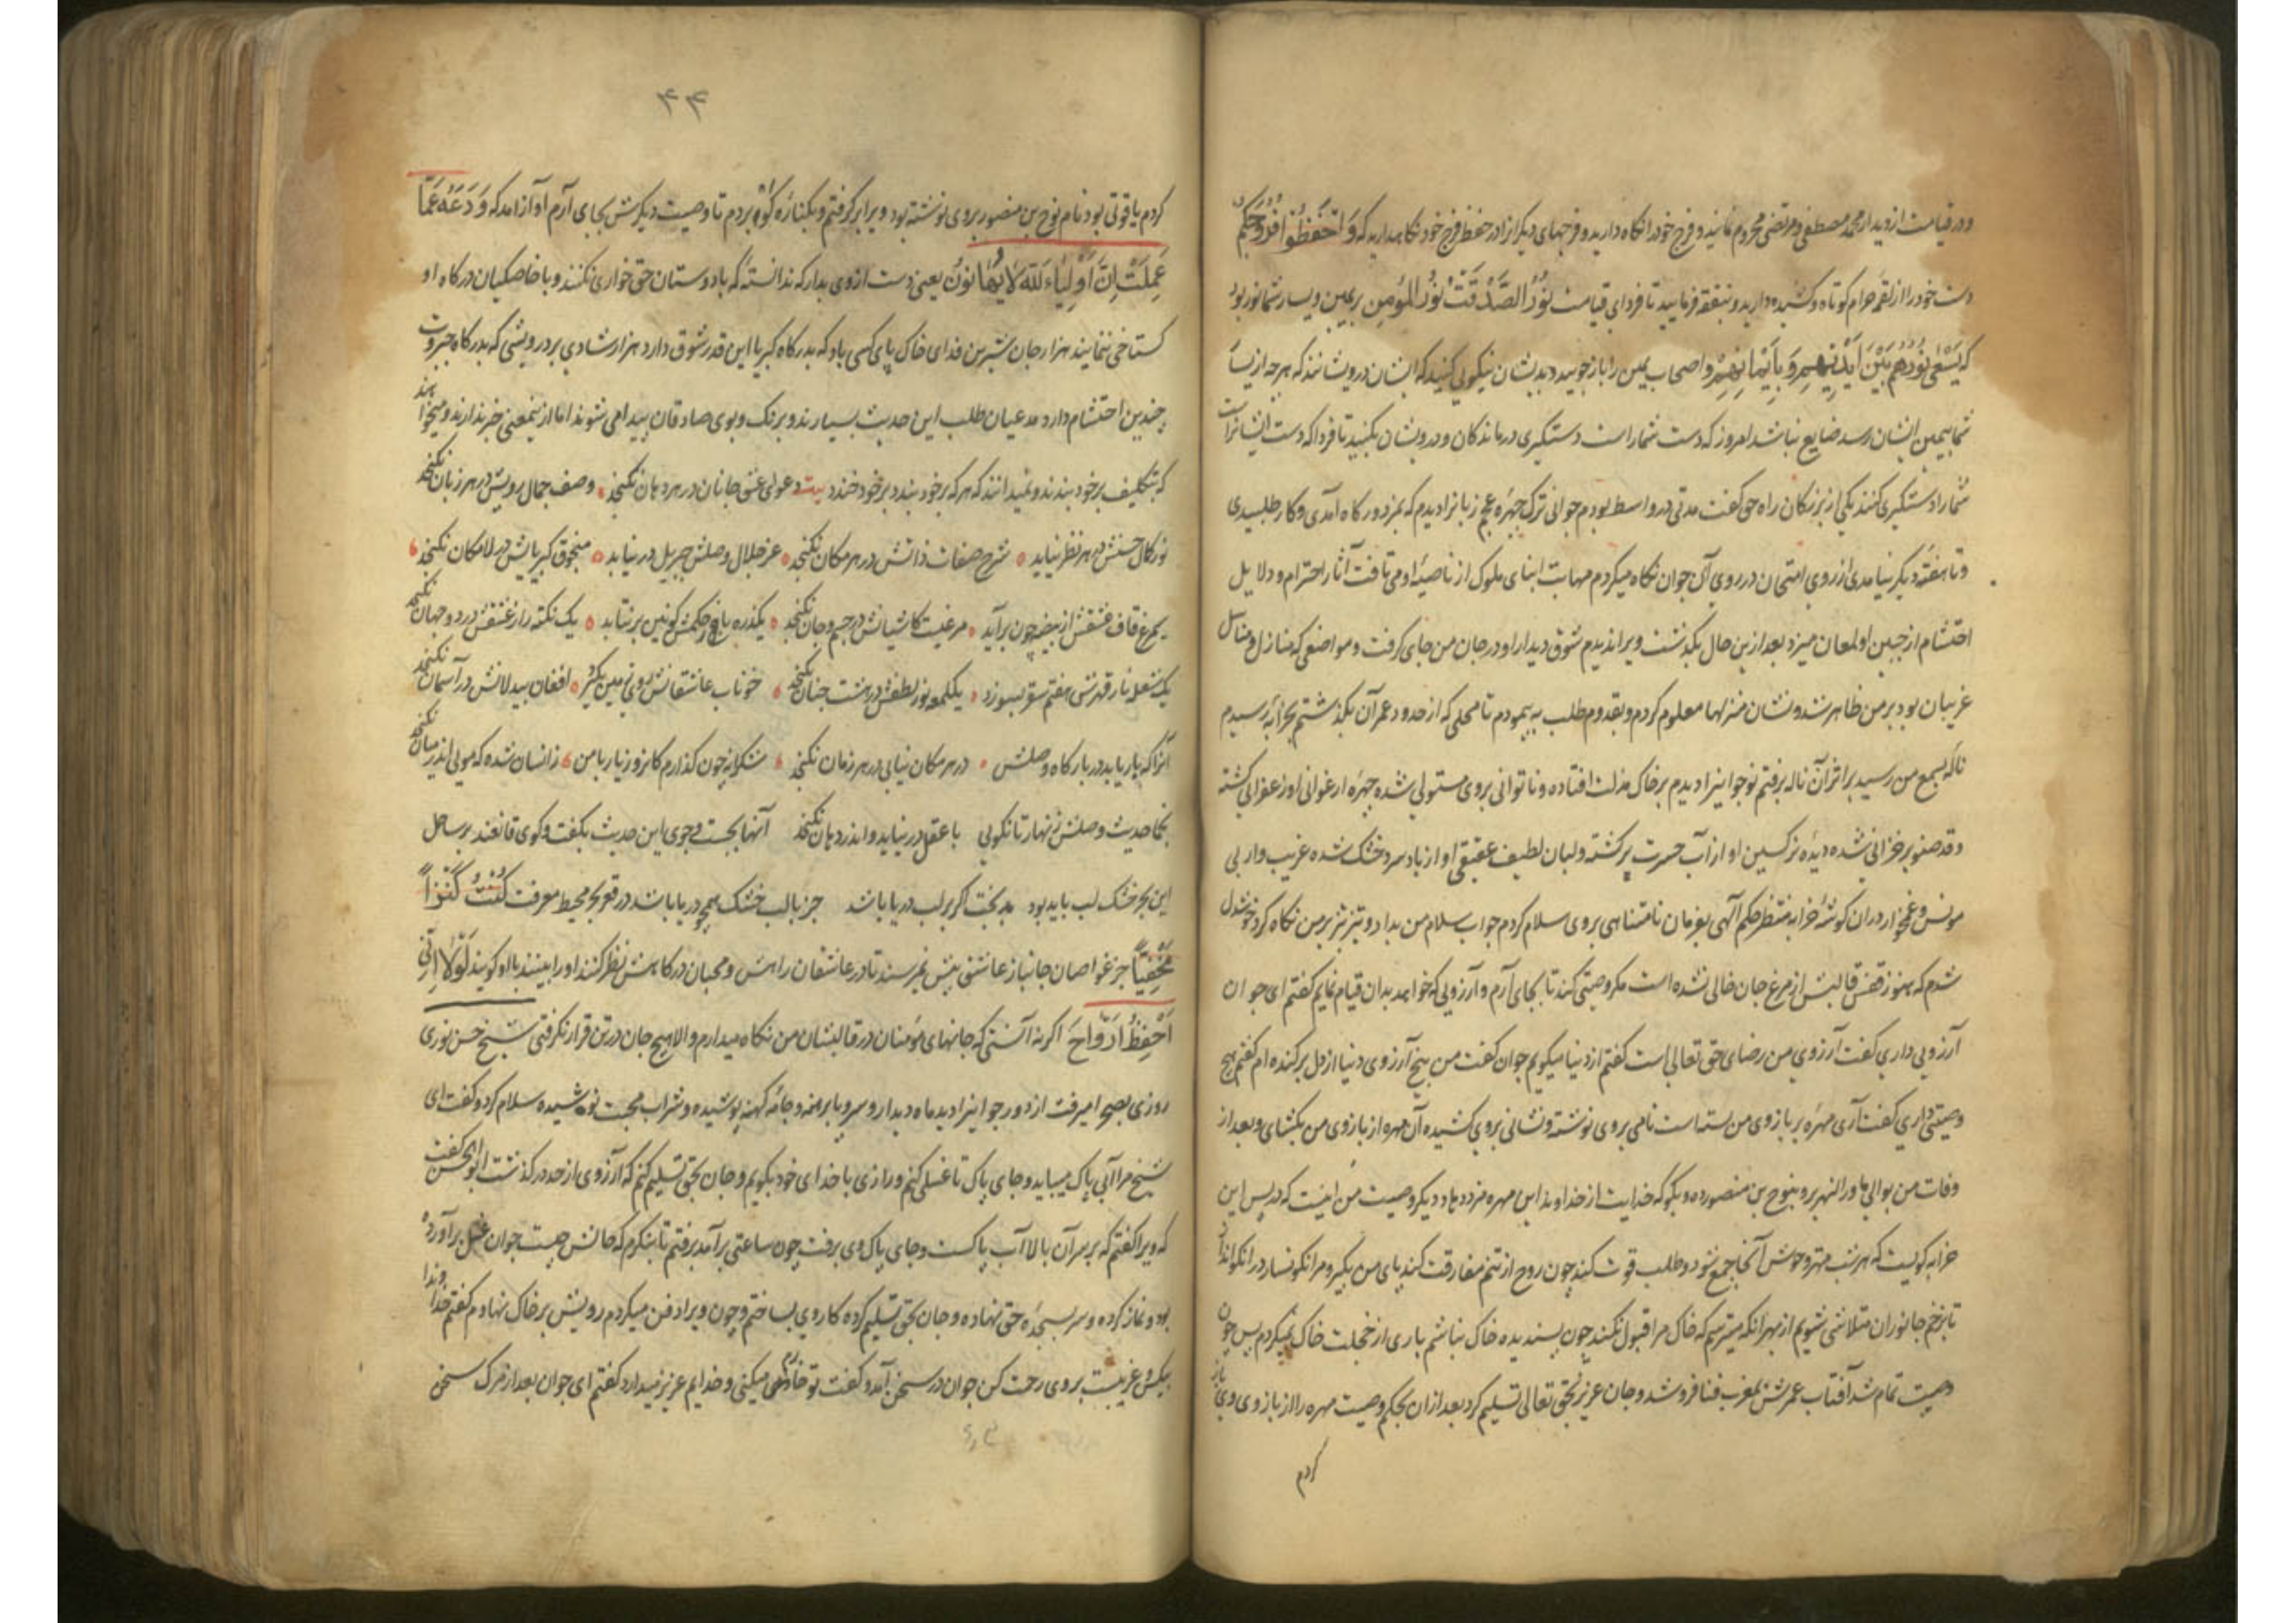 ودر قیامت از دیدار محمد مصطفی و مرتضی محروم نمانید و فرج خود را نگاه دارید و فرجهای دیگرانرا در حفظ فرج خود نگاهدارید که وَاحْفَظُوا فُرُوجَكُمْ
دست خود را از لقمه حرام کوتاه و کشیده دارید و بنفقه فرمایید تا فردای قیامت نُورُ الصَّدْقَةِ نُورُ المُؤمِن بر یمین و یسار شما نور بود
که یَسْعٰی نُورُهُمْ بَیْنَ اَیْدِیْهِم وَبِأَیْمَانِهِمْ و اصحاب یمین را باز جویید و بدیشان نیکویی کنید که ایشان درویشانند که هر چه از یسار
شما بیمین ایشان رسد ضایع نباشد امروز که دست شماراست دستگیری درماندگان و درویشان بکنید تا فردا که دست ایشانراست
شما را دستگیری کنند یکی از بزرگان راه حق گفت مدتی در واسط بودم جوانی ترک چهره عجم زبانرا دیدم که بمزدور گاه آمدی و کار طلبیدی
و تا هفته دیگر نیامدی از روی امتحان در روی آن جوان نگاه میکردم مهابت ابنای ملوک از ناصیهٔ او می تافت آثار احترام و دلایل
احتشام از جبین او لمعان میزد بعد ازین حال بگذشت ویرا ندیدم شوق دیدار او در جان من جای گرفت و مواضعی که منازل و مناسل
غریبان بود بر من ظاهر شد و نشان منزلها معلوم کردم و بقدوم طلب به پیمودم تا محلی که از حدود عمران بگذشتم بخرابه رسیدم
ناله بسمع من رسید بر اثر آن ناله برفتم نوجوانیرا دیدم بر خاک مذلت افتاده و ناتوانی بروی مستولی شده چهره ارغوانی او زعفرانی گشته
و قد صنوبر خزانی شده دیده نرگسین او از آب حسرت پر گشته و لبان لطیف عقیقی او از باد سرد خشک شده غریب وار بی
مونس و غمخوار در ان گوشهٔ خرابه منتظر حکم آلهی بفرمان نامتناهی بروی سلام کردم جواب سلام من بداد و تیز تیز بر من نگاه کرد خوشدل
شدم که هنوز قفس قالبش از مرغ جان خالی نشده است مگر وصیتی کند تا بجای آرم و آرزویی که خواهد بدان قیام نمایم گفتم ای جوان
آرزویی داری گفت آرزوی من رضای حق تعالی است گفتم از دنیا میگویم جوان گفت من بیخ آرزوی دنیا از دل برکنده ام گفتم هیچ
وصیتی داری گفت آری مهرهٔ بر بازوی من بسته است نامی بروی نوشته و نشانی بروی کشیده آن مهره از بازوی من بگشای و بعد از
وفات من بوالی ماورالنهر بر و بنوح بن منصور ده و بگو که خدایت از خداوند این مهره مزد دهاد و دیگر وصیت من اینست که در پس این
خرابه گویست که هر شب مهتر وحوش آنجا جمع شود و طلب قوت کنند چون روح از تنم مفارقت کند پای من بگیر و مرا نگونسار در ان گو انداز
تا بزخم جانوران متلاشی شویم از بهر انکه میترسم که خاک مرا قبول نکند چون پسندیده خاک نباشم باری از خجلت خاک نمیکردم پس چون
وصیت تمام شد آفتاب عمرش بمغرب فنا فرو شد و جان عزیز بحق تعالی تسلیم کرد بعد از ان بحکم وصیت مهره را از بازوی وی باز
کردم
۴۴
کردم یاقوتی بود نام نوح بن منصور بروی نوشته بود ویرا برگرفتم و بکنارهٔ گو بردم تا وصیت دیگرش بجای آرم آواز آمد که وَدَعْهُ عَمَّا
عَمِلَتْ اِنَّ اَوْلِیَاءَ اللّٰهِ لَایُهَانُونَ یعنی دست ازوی بدار که ندانستهٔ که با دوستان حق خواری نکنند و با خاصگیان درگاه او
گستاخی ننمایند هزار جان شیرین فدای خاک پای کسی باد که بدرگاه کبریا این قدر شوق دارد هزار شادی بر درویشی که بدرگاه جبروت
چندین احتشام دارد مدعیان طلب این حدیث بسیارند و برنگ و بوی صادقان پیدا می شوند اما از ینمعنی خبر ندارند و میخواهند
که بتکلیف بر خود بندند و نمیدانند که هر که بر خود بندد بر خود خندد بیت دعوای عشق جانان در هر دهان نگنجد وصف جمال رویش در هر زبان نگنجد
نور کمال حسنش در هر نظر نیاید شرح صفات ذاتش در هر مکان نگنجد عز جلال وصلش جبریل در نیابد منجوق کبریایش در لامکان نگنجد
سیمرغ قاف عشقش از بیضه چون برآید مرغیست کاشیانش در جسم و جان نگنجد یکذره باد حکمش کونین بر نتابد یک نکته راز عشقش در دو جهان نگنجد
یک شعله نار قهرش هفتم سقر بسوزد یکلمعه نور لطفش در هشت جنان نگنجد خوناب عاشقانش روی زمین بگیرد افغان بیدلانش در آسمان نگنجد
آنرا که بار باید در بارگاه وصلش در هر مکان نیابی در هر زمان نگنجد شکرانه چون گذارم کامروز یار با من زانسان شده که مویی اندر میان نگنجد
حدیث وصلش زنهار تا نگویی با عقل در نیاید و اندر دهان نگنجد آنها بجست و جوی این حدیث بگفت و گوی قانعند بر ساحل
این بحر خشک لب باید بود بدبخت اگر بر لب دریا باشد جز با لب خشک همچو دریا باشد در قعر بحر محیط معرفت کُنْتُ کَنْزاً
مَخْفِیّاً جز غواصان جانباز عاشق پیش نمرسند تا در عاشقان راهش و محبان درگاهش نظر کنند او را بینند با او گویند لَوْلَا اِنِّی
اَحْفِظُ اَرْوَاحَ اگر نه آنستی که جانهای مؤمنان در قالبشان من نگاه میدارم والا هیچ جان در تن قرار نگرفتی شیخ حسن نوری
روزی بصحرا میرفت از دور جوانیرا دید ماه دیدار و سر و پا برهنه و جامه کهنه پوشیده و شراب محبت نوشیده سلام کرد و گفت ای
شیخ مرا آبی پاک میباید و جای پاک تا غسلی کنم و رازی با خدای خود بگویم و جان بحق تسلیم کنم که آرزوی از حد در گذشت ابوالحسن گفت
که ویرا گفتم که بر سر آن بالا آب پاکست و جای پاک وی برفت چون ساعتی بر آمد برفتم تا بنگرم که حالش چیست جوان غسل برآورده
بود و نماز کرده و سر بسجده حق نهاده و جان بحق تسلیم کرده کار وی بساختم و چون ویرا دفن میکردم رویش بر خاک نهادم گفتم خداوندا
بیکس و غریبست بروی رحمت کن جوان در سخن آمد و گفت تو خوارم میکنی و خدایم عزیز میدارد گفتم ای جوان بعد از مرگ سخن